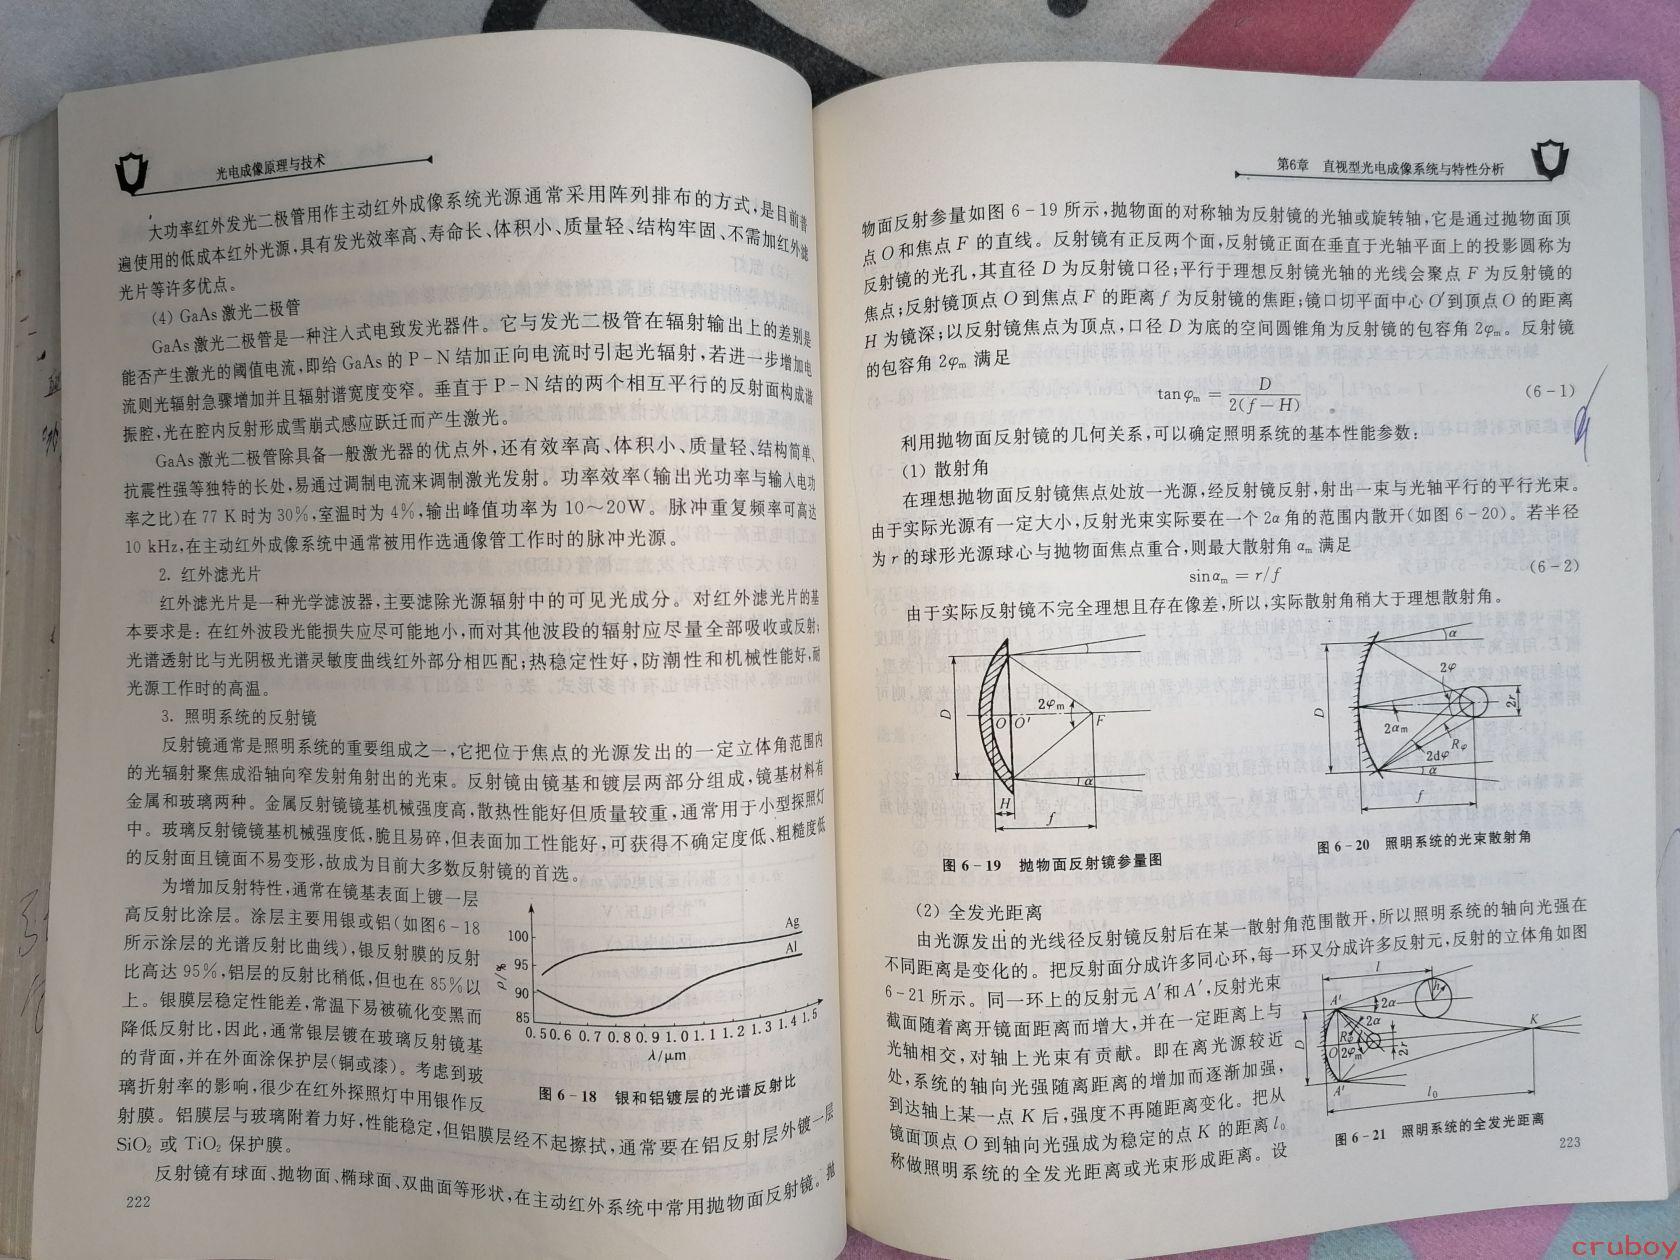 光电成像原理与技术
大功率红外发光二极管用作主动红外成像系统光源通常采用阵列排布的方式,是目前普
遍使用的低成本红外光源,具有发光效率高、寿命长、体积小、质量轻、结构牢固、不需加红外滤
光片等许多优点。
(4) GaAs 激光二极管
GaAs 激光二极管是一种注入式电致发光器件。它与发光二极管在辐射输出上的差别是
能否产生激光的阈值电流,即给 GaAs 的 P-N 结加正向电流时引起光辐射,若进一步增加电
流则光辐射急骤增加并且辐射谱宽度变窄。垂直于 P-N 结的两个相互平行的反射面构成谐
振腔,光在腔内反射形成雪崩式感应跃迁而产生激光。
GaAs 激光二极管除具备一般激光器的优点外,还有效率高、体积小、质量轻、结构简单、
抗震性强等独特的长处,易通过调制电流来调制激光发射。功率效率(输出光功率与输入电功
率之比)在 77 K 时为 30%,室温时为 4%,输出峰值功率为 10～20W。脉冲重复频率可高达
10 kHz,在主动红外成像系统中通常被用作选通像管工作时的脉冲光源。
2. 红外滤光片
红外滤光片是一种光学滤波器,主要滤除光源辐射中的可见光成分。对红外滤光片的基
本要求是: 在红外波段光能损失应尽可能地小,而对其他波段的辐射应尽量全部吸收或反射;
光谱透射比与光阴极光谱灵敏度曲线红外部分相匹配;热稳定性好,防潮性和机械性能好,耐
光源工作时的高温。
3. 照明系统的反射镜
反射镜通常是照明系统的重要组成之一,它把位于焦点的光源发出的一定立体角范围内
的光辐射聚焦成沿轴向窄发射角射出的光束。反射镜由镜基和镀层两部分组成,镜基材料有
金属和玻璃两种。金属反射镜镜基机械强度高,散热性能好但质量较重,通常用于小型探照灯
中。玻璃反射镜镜基机械强度低,脆且易碎,但表面加工性能好,可获得不确定度低、粗糙度低
的反射面且镜面不易变形,故成为目前大多数反射镜的首选。
为增加反射特性,通常在镜基表面上镀一层
高反射比涂层。涂层主要用银或铝(如图6-18
所示涂层的光谱反射比曲线),银反射膜的反射
比高达 95%,铝层的反射比稍低,但也在 85%以
上。银膜层稳定性能差,常温下易被硫化变黑而
降低反射比,因此,通常银层镀在玻璃反射镜基
的背面,并在外面涂保护层(铜或漆)。考虑到玻
璃折射率的影响,很少在红外探照灯中用银作反
射膜。铝膜层与玻璃附着力好,性能稳定,但铝膜层经不起擦拭,通常要在铝反射层外镀一层
SiO₂ 或 TiO₂ 保护膜。
反射镜有球面、抛物面、椭球面、双曲面等形状,在主动红外系统中常用抛物面反射镜。抛
ρ/%
100
95
90
85
Ag
Al
0.5 0.6 0.7 0.8 0.9 1.0 1.1 1.2 1.3 1.4 1.5
λ/μm
图 6-18 银和铝镀层的光谱反射比
222
第6章 直视型光电成像系统与特性分析
物面反射参量如图 6-19 所示,抛物面的对称轴为反射镜的光轴或旋转轴,它是通过抛物面顶
点 O 和焦点 F 的直线。反射镜有正反两个面,反射镜正面在垂直于光轴平面上的投影圆称为
反射镜的光孔,其直径 D 为反射镜口径;平行于理想反射镜光轴的光线会聚点 F 为反射镜的
焦点;反射镜顶点 O 到焦点 F 的距离 f 为反射镜的焦距;镜口切平面中心 O′到顶点 O 的距离
H 为镜深;以反射镜焦点为顶点,口径 D 为底的空间圆锥角为反射镜的包容角 2φm。反射镜
的包容角 2φm 满足
tanφm = D/2(f−H) (6-1)
利用抛物面反射镜的几何关系,可以确定照明系统的基本性能参数:
(1) 散射角
在理想抛物面反射镜焦点处放一光源,经反射镜反射,射出一束与光轴平行的平行光束。
由于实际光源有一定大小,反射光束实际要在一个 2α 角的范围内散开(如图 6-20)。若半径
为 r 的球形光源球心与抛物面焦点重合,则最大散射角 αm 满足
sinαm = r/f (6-2)
由于实际反射镜不完全理想且存在像差,所以,实际散射角稍大于理想散射角。
α
D
2φm
O O′ F
α
H
f
图 6-19 抛物面反射镜参量图
α
2φ
D
2αm
2r
Rφ
2dφ
α
f
图 6-20 照明系统的光束散射角
(2) 全发光距离
由光源发出的光线径反射镜反射后在某一散射角范围散开,所以照明系统的轴向光强在
不同距离是变化的。把反射面分成许多同心环,每一环又分成许多反射元,反射的立体角如图
6-21 所示。同一环上的反射元 A′和 A′,反射光束
截面随着离开镜面距离而增大,并在一定距离上与
光轴相交,对轴上光束有贡献。即在离光源较近
处,系统的轴向光强随离距离的增加而逐渐加强,
到达轴上某一点 K 后,强度不再随距离变化。把从
镜面顶点 O 到轴向光强成为稳定的点 K 的距离 l₀
称做照明系统的全发光距离或光束形成距离。设
l
A′
2α
h
2α
K
D
Rφ
O 2φm
2r
A′
l₀
图 6-21 照明系统的全发光距离
223
cruboy